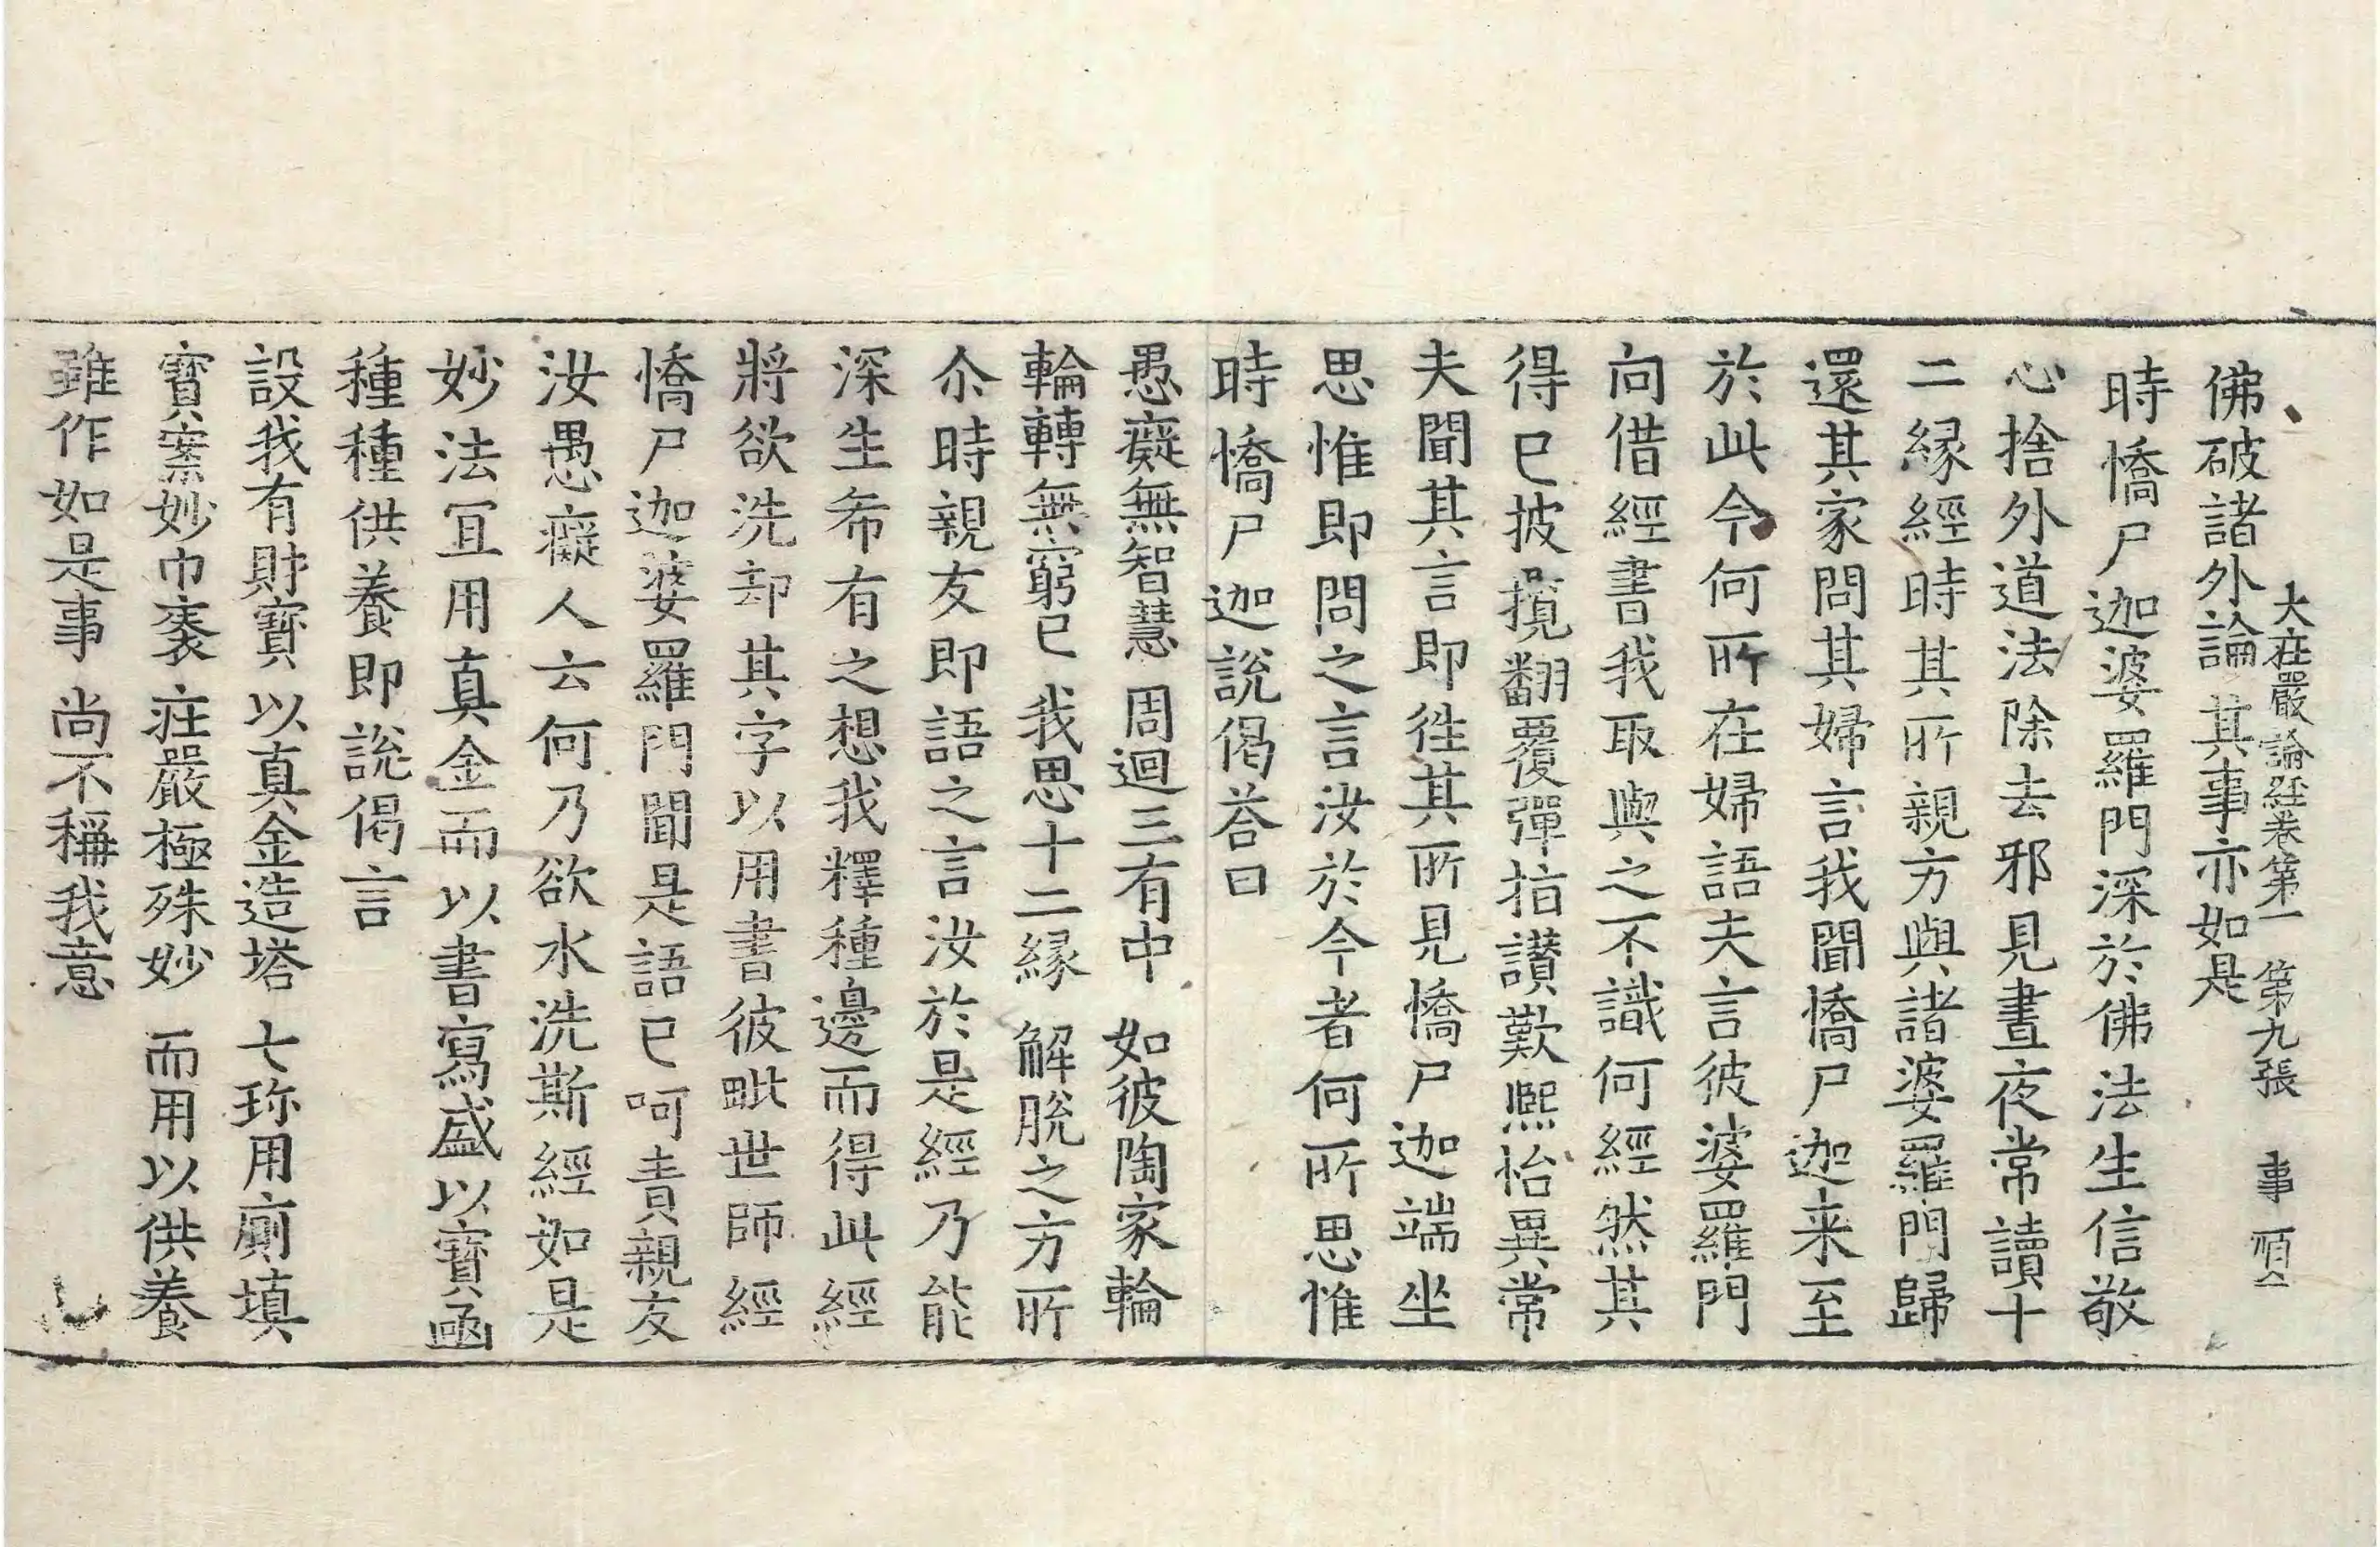 大庄嚴論経卷第一　第九張　事　順
佛破諸外論　其事亦如是
時憍尸迦婆羅門深於佛法生信敬
心捨外道法除去邪見晝夜常讀十
二縁經時其所親方與諸婆羅門歸
還其家問其婦言我聞憍尸迦来至
於此今何所在婦語夫言彼婆羅門
向借經書我取與之不識何經然其
得已披攬翻覆彈指讃歎熙怡異常
夫聞其言即徃其所見憍尸迦端坐
思惟即問之言汝於今者何所思惟
時憍尸迦說偈荅曰
愚癡無智慧　周迴三有中　如彼陶家輪
輪轉無窮已　我思十二縁　解脫之方所
尒時親友即語之言汝於是經乃能
深生希有之想我釋種邊而得此經
將欲洗却其字以用書彼毗世師經
憍尸迦婆羅門聞是語已呵責親友
汝愚癡人云何乃欲水洗斯經如是
妙法冝用真金而以書寫盛以寶函
種種供養即說偈言
設我有財寶　以真金造塔　七珎用廁填
寶案妙巾袠　庄嚴極殊妙　而用以供養
雖作如是事　尚不稱我意